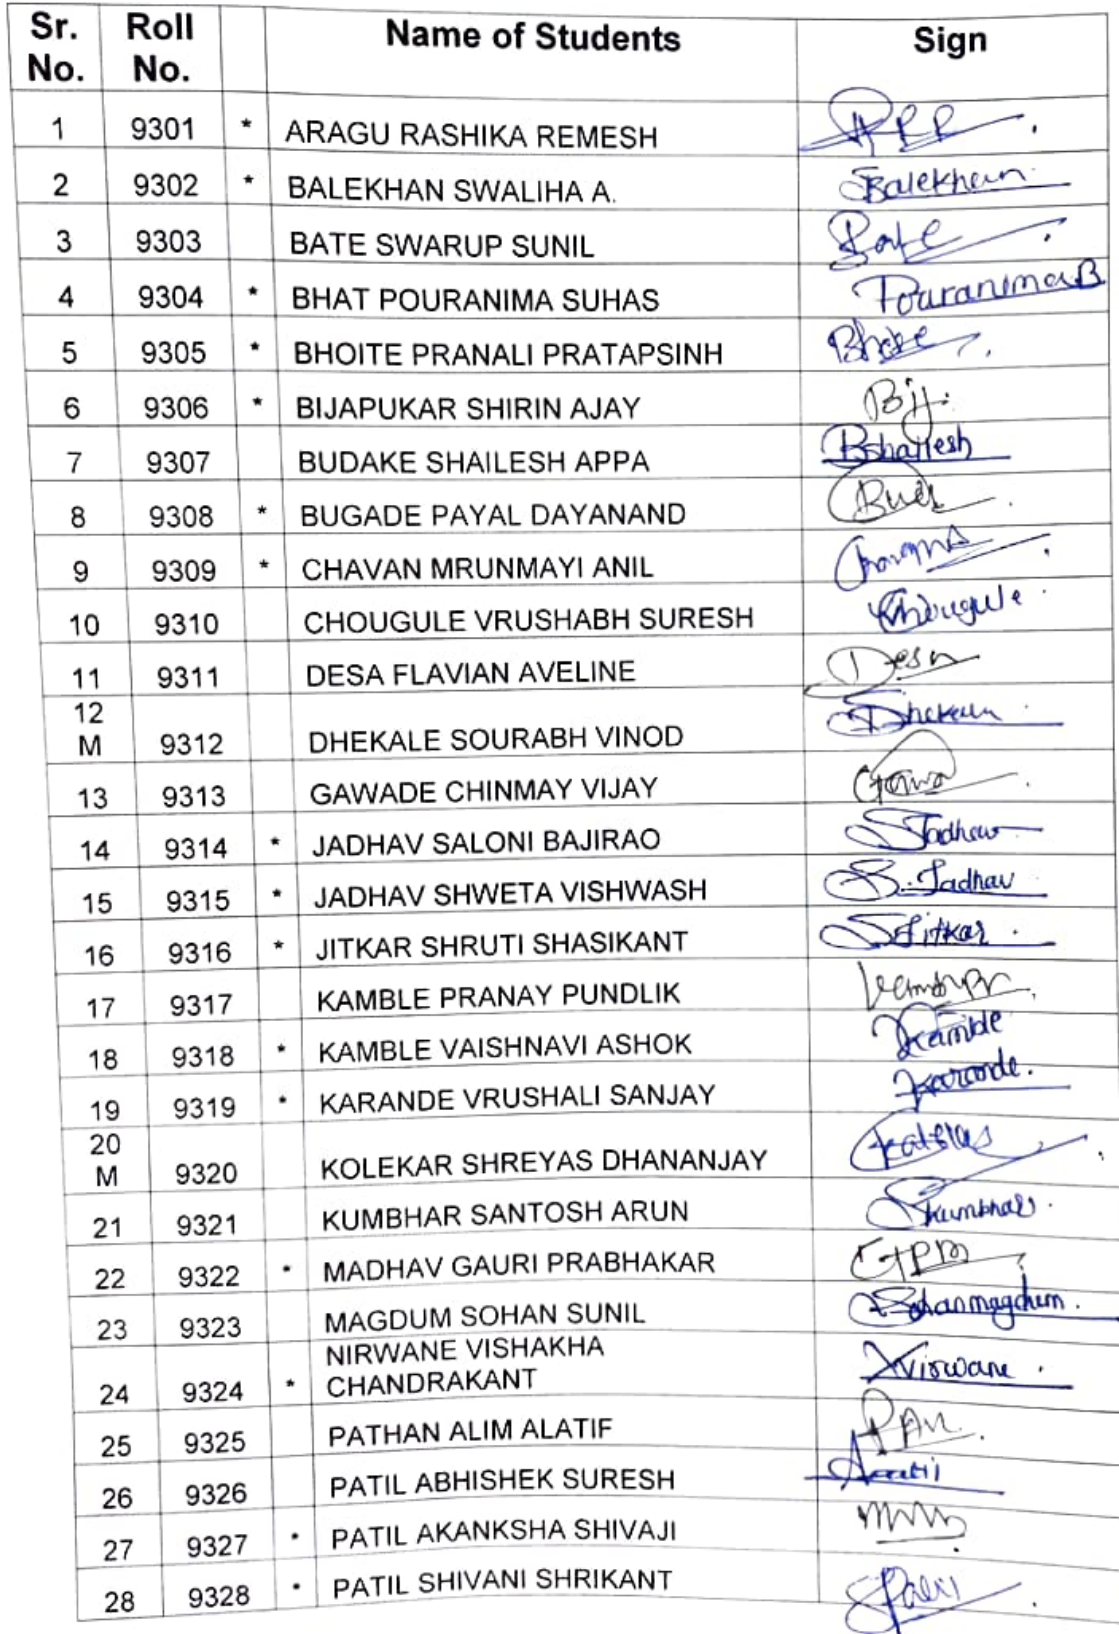 Sr. No. Roll No. Name of Students Sign
1 9301 * ARAGU RASHIKA REMESH
2 9302 * BALEKHAN SWALIHA A. Balekhan
3 9303 BATE SWARUP SUNIL Bate
4 9304 * BHAT POURANIMA SUHAS PouranimaB
5 9305 * BHOITE PRANALI PRATAPSINH
6 9306 * BIJAPUKAR SHIRIN AJAY Bij.
7 9307 BUDAKE SHAILESH APPA Bshailesh
8 9308 * BUGADE PAYAL DAYANAND
9 9309 * CHAVAN MRUNMAYI ANIL
10 9310 CHOUGULE VRUSHABH SURESH Chougule
11 9311 DESA FLAVIAN AVELINE Desa
12 M 9312 DHEKALE SOURABH VINOD
13 9313 GAWADE CHINMAY VIJAY
14 9314 * JADHAV SALONI BAJIRAO SJadhav
15 9315 * JADHAV SHWETA VISHWASH S. Jadhav
16 9316 * JITKAR SHRUTI SHASIKANT SJitkar
17 9317 KAMBLE PRANAY PUNDLIK
18 9318 * KAMBLE VAISHNAVI ASHOK Kamble
19 9319 * KARANDE VRUSHALI SANJAY Karande.
20 M 9320 KOLEKAR SHREYAS DHANANJAY
21 9321 KUMBHAR SANTOSH ARUN Skumbhar
22 9322 * MADHAV GAURI PRABHAKAR GPM
23 9323 MAGDUM SOHAN SUNIL Sohanmagdum.
24 9324 * NIRWANE VISHAKHA
CHANDRAKANT
25 9325 PATHAN ALIM ALATIF
26 9326 PATIL ABHISHEK SURESH
27 9327 * PATIL AKANKSHA SHIVAJI
28 9328 * PATIL SHIVANI SHRIKANT